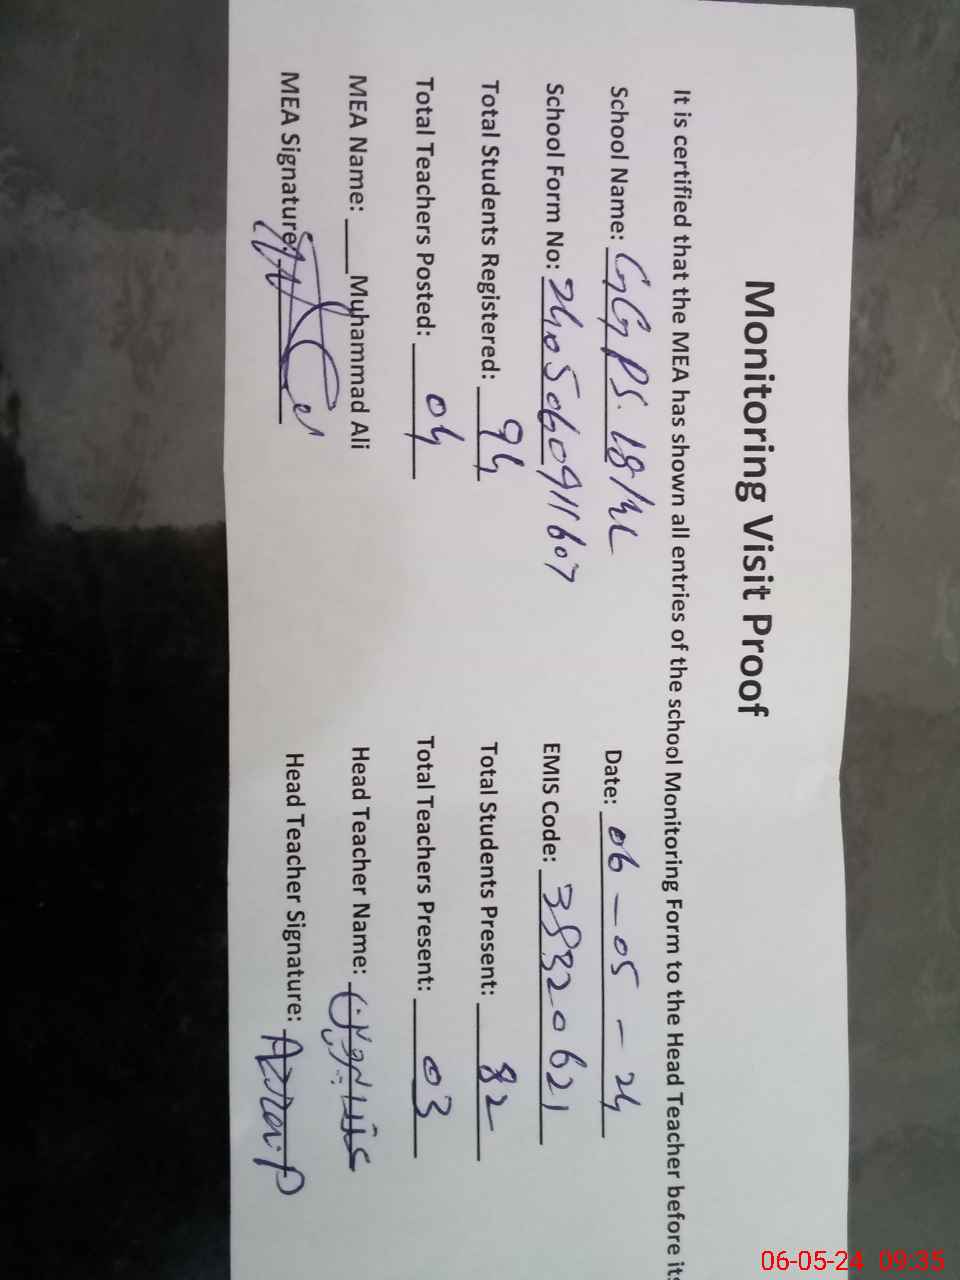 Monitoring Visit Proof
It is certified that the MEA has shown all entries of the school Monitoring Form to the Head Teacher before its
School Name: GGPS. 18/ML Date: 06-05-24
School Form No: 2405060911607 EMIS Code: 38320621
Total Students Registered: 94 Total Students Present: 82
Total Teachers Posted: 04 Total Teachers Present: 03
MEA Name: Muhammad Ali Head Teacher Name: عذرا پروین
MEA Signature: Head Teacher Signature:
06-05-24 09:35